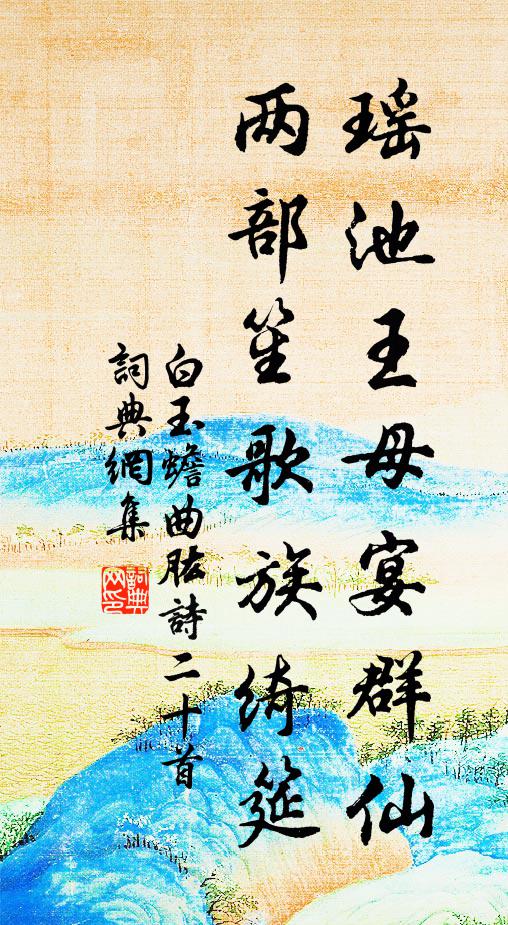 瑶池王母宴群仙
两部笙歌族绮筵
白玉蟾曲肱詩二十首
詞典網集
詞典
网印